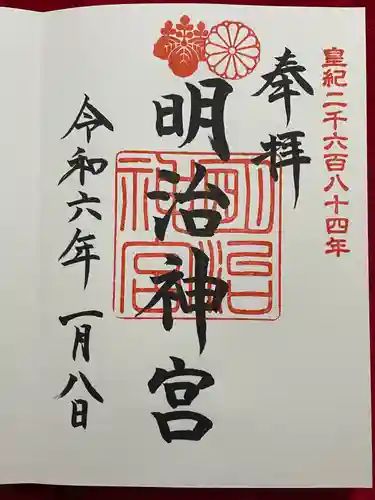 皇紀二千六百八十四年
奉拝
明治神宮
明治
神宮
令和六年 一月八日